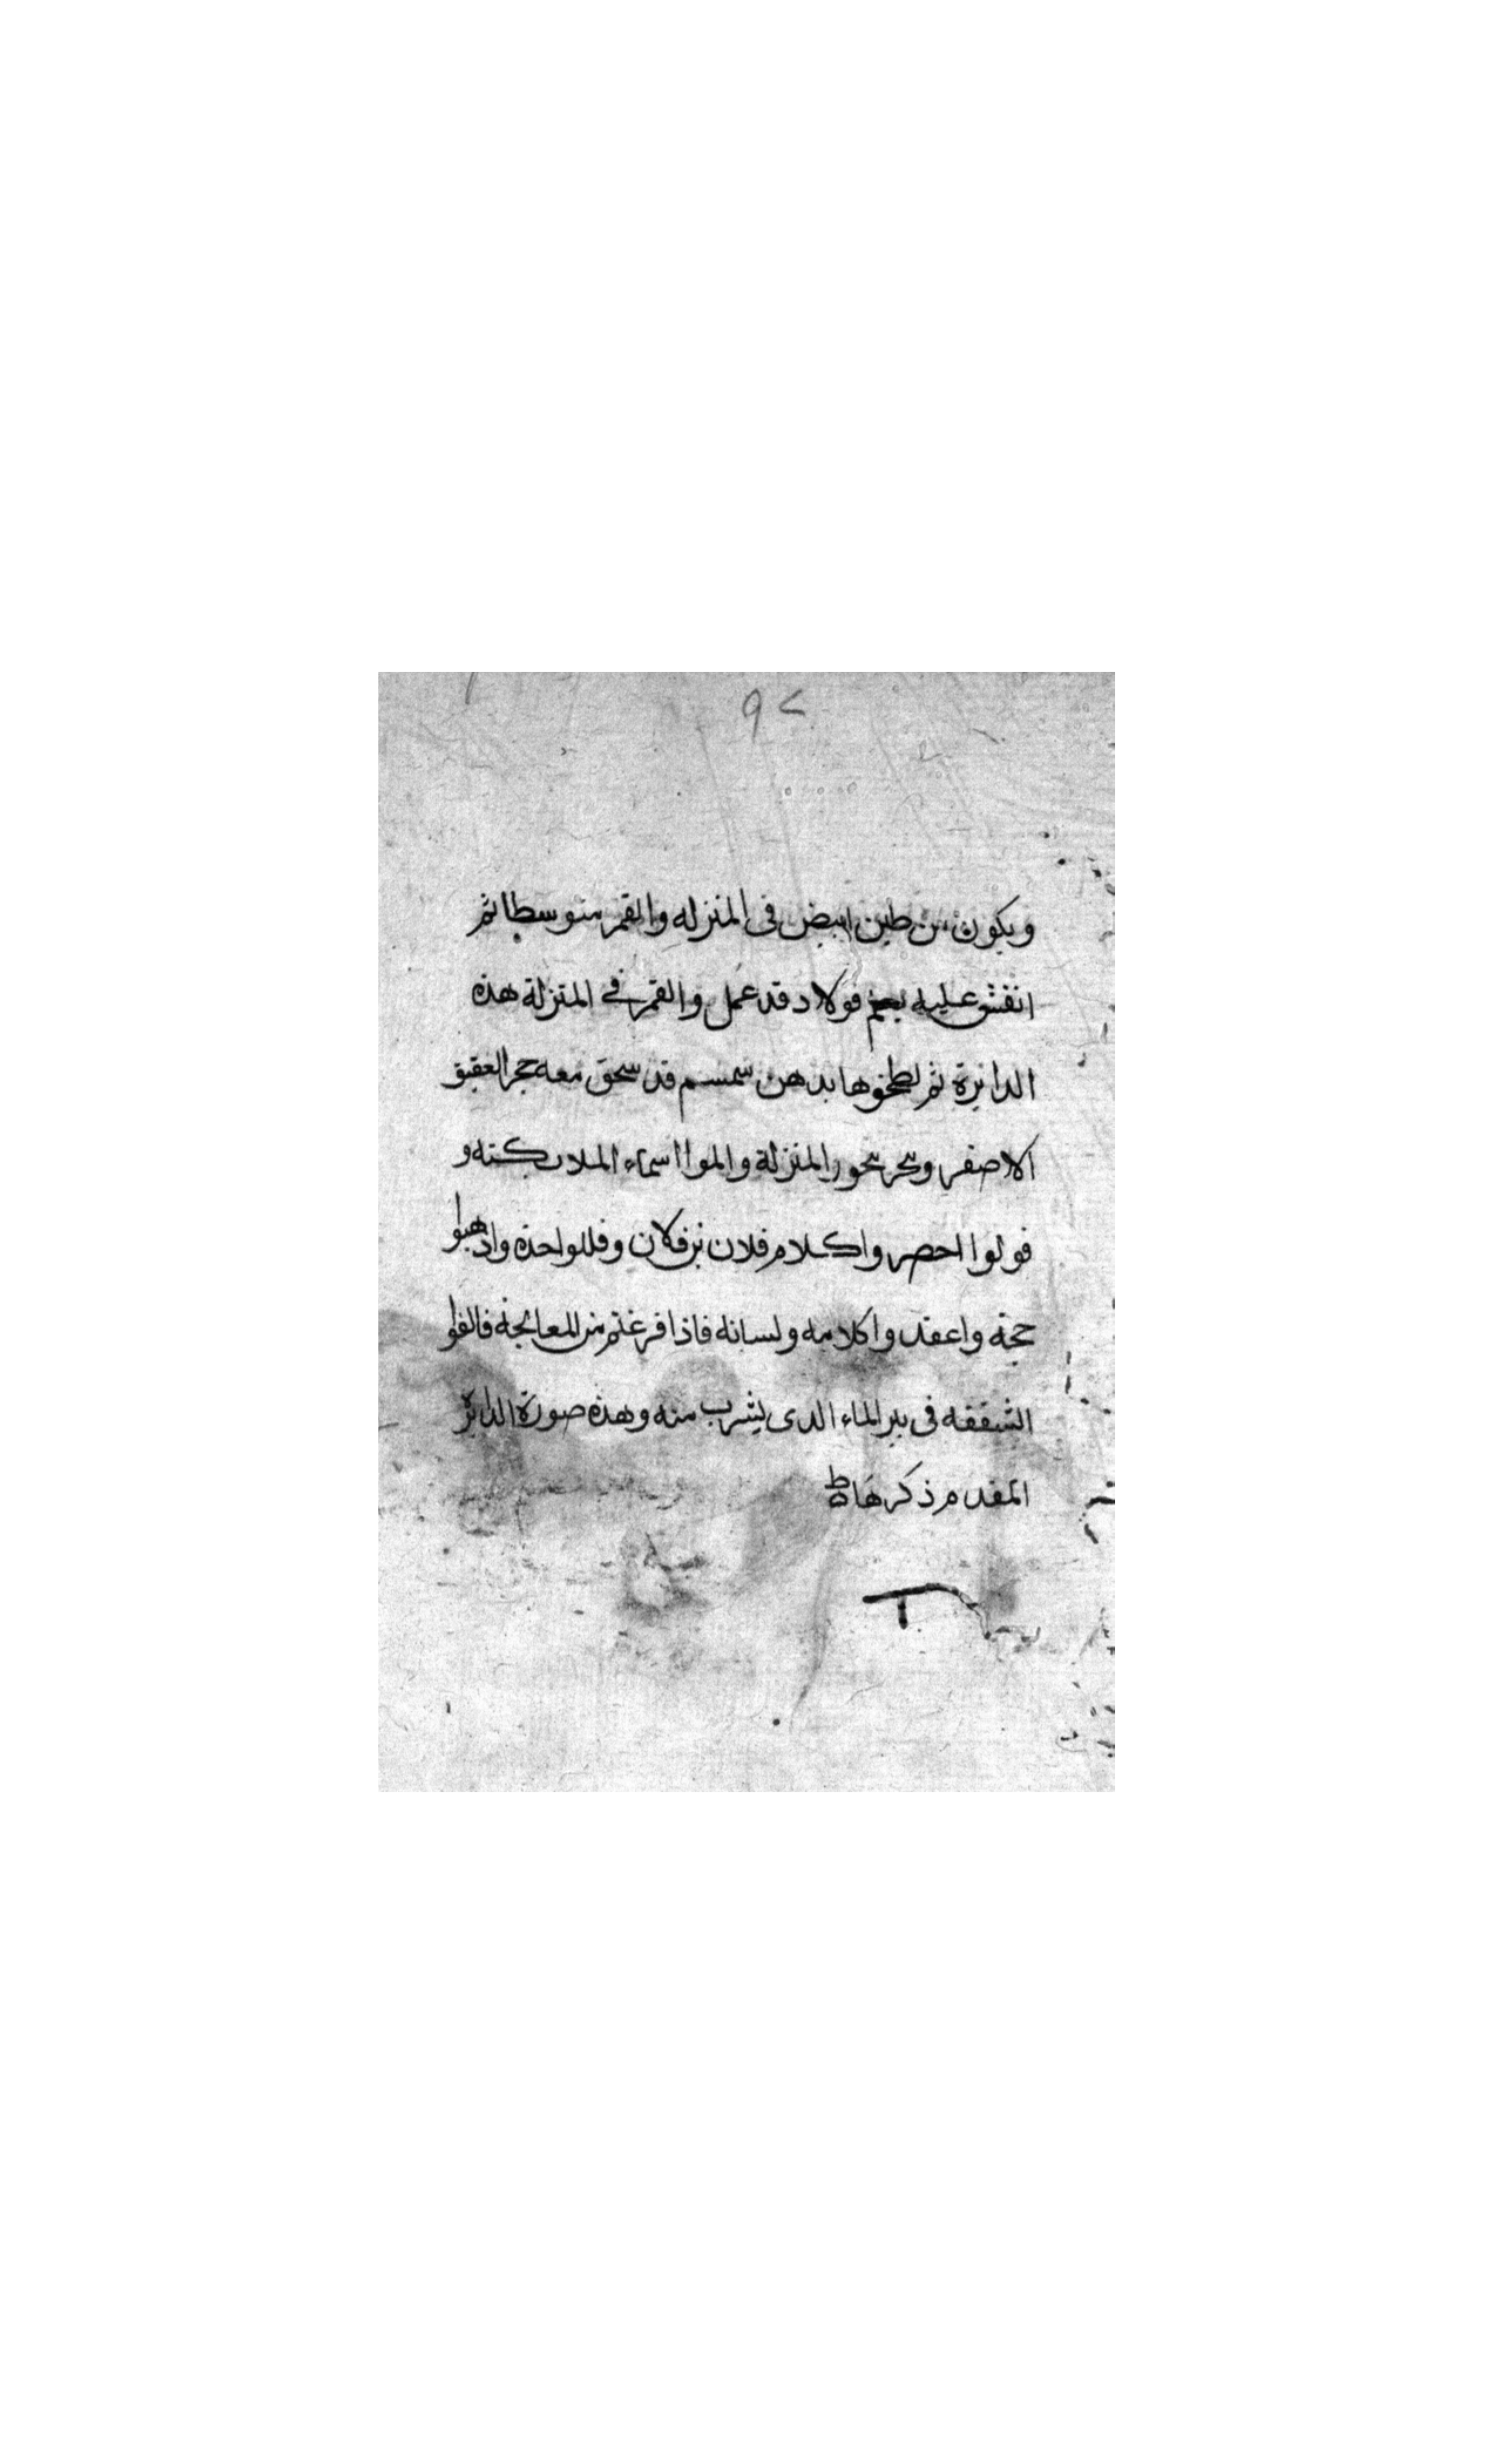 ٩٢
ويكون من طين ابيض فى المنزله والقمر متوسطا ثم
انقش عليه بختم فولاد قد عمل والقمر فى المنزلة هذه
الدايرة ثم لطخوها بدهن سمسم قد سحق معه حجر العقيق
الاصفر وبخر بخور المنزلة والموا اسماء الملايكته و
قولوا احصروا كلام فلان بن فلان وفللوا حدة واذهبوا
حجته واعقدوا كلامه ولسانه فاذا فرغتم من المعالجة فالقوا
الشقفه فى بير الماء الدى يشرب منه وهذه صورة الدايرة
المقدم ذكرها